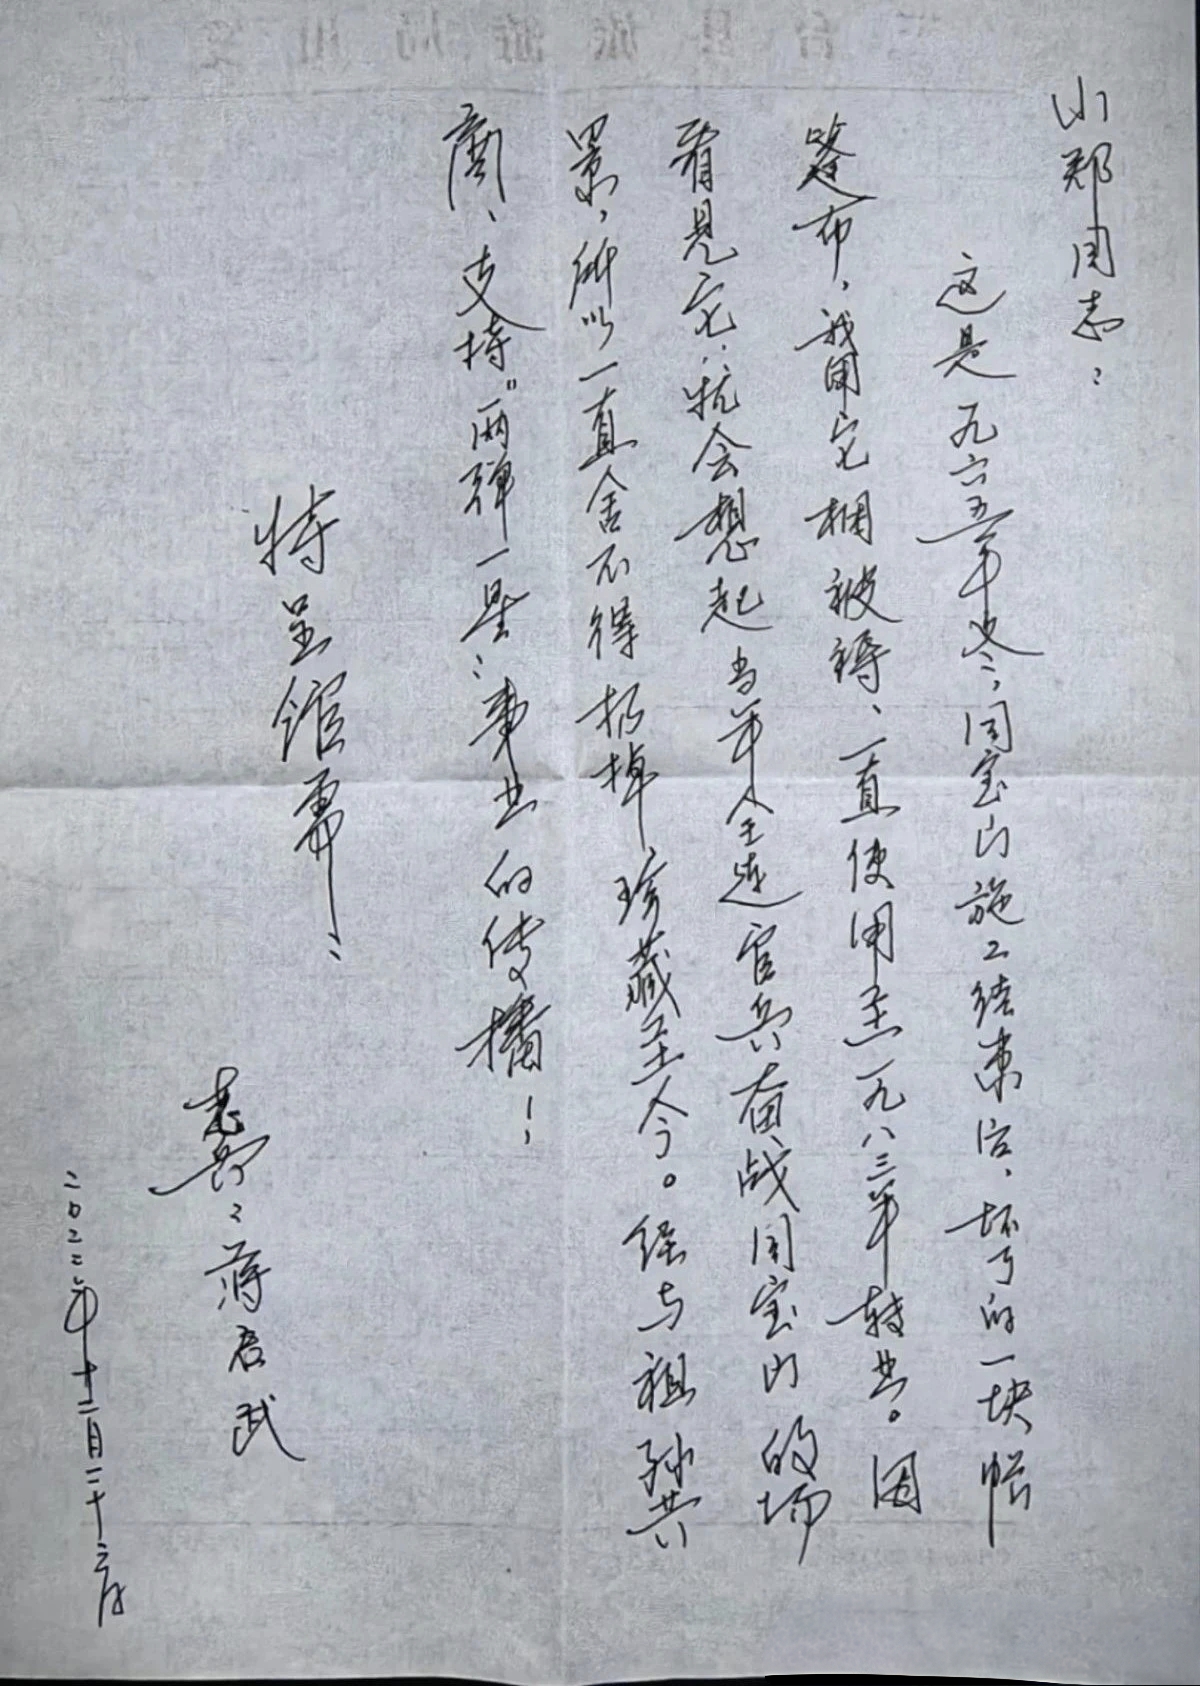 小郑同志：
这是一九六五年冬，国宝山施工结束后，坏了的一块帐
篷布，我用它捆被褥、一直使用至一九八三年转业。因
看见它：就会想起当年全连官兵奋战国宝山的场
景，所以一直舍不得扔掉珍藏至今。经与祖孙共
商、支持“两弹一星”事业的传播！
特呈馆
老郑：蒋启武
二〇二二年十二月二十六日